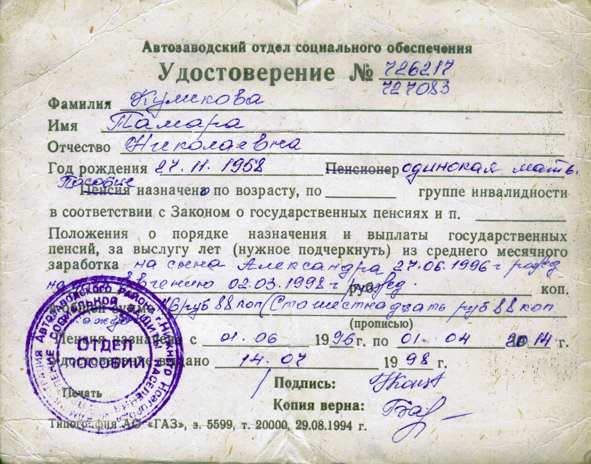 Автозаводский отдел социального обеспечения
Удостоверение № 726217
727083
Фамилия Куликова
Имя Тамара
Отчество Николаевна
Год рождения 27.11.1958 Пенсионер одинокая мать.
Пособие
Пенсия назначено по возрасту, по группе инвалидности
в соответствии с Законом о государственных пенсиях и п.
Положения о порядке назначения и выплаты государственных
пенсий, за выслугу лет (нужное подчеркнуть) из среднего месячного
заработка на сына Александра 27.06.1996 г рожд
на 02.03.1998 г рожд. руб. коп.
116 руб 88 коп (Сто шестнадцать руб 88 коп
(прописью)
Пенсия назначена с 01.06 1996 г. по 01.04 2014 г.
Удостоверение выдано 14.07 1998 г.
ОТДЕЛ
ПОСОБИЙ
Подпись:
Печать
Копия верна:
Типография АО «ГАЗ», з. 5599, т. 20000, 29.08.1994 г.